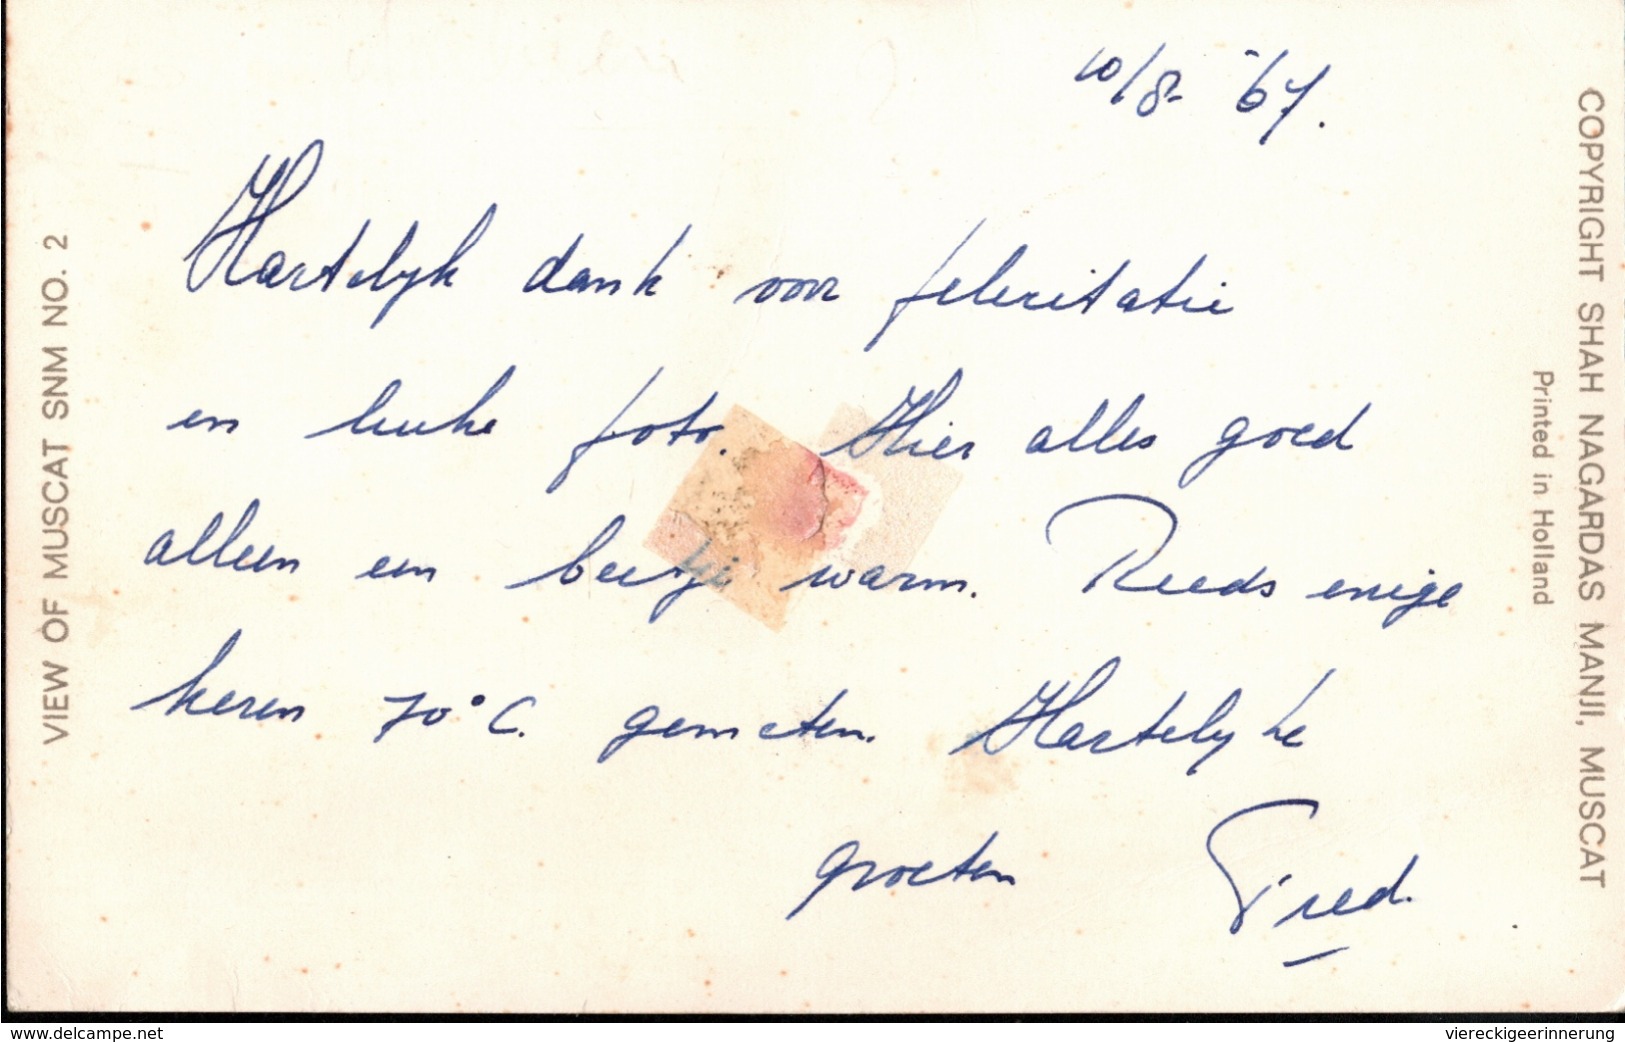 10/8 - '67.
Hartelyk dank voor felicitatie
en leuke foto. Hier alles goed
alleen een beetje warm. Reeds enige
keren 70°C. gemeten. Hartelyke
groeten Fred.
VIEW OF MUSCAT SNM NO. 2
COPYRIGHT SHAH NAGARDAS MANJI, MUSCAT
Printed in Holland
www.delcampe.net
viereckigeerinnerung